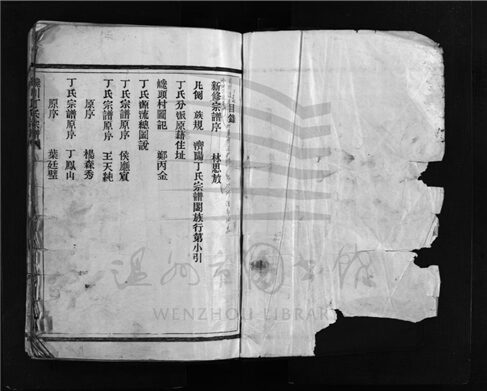 目錄
新修宗譜序 林思敖
凡例 族規 濟陽丁氏宗譜閤族行第小引
丁氏分派原藉住址
嶺頭村圖記 鄭丙金
丁氏源流總圖說
丁氏宗譜原序 侯廳賔
丁氏宗譜原序 王天純
原序 楊森秀
丁氏宗譜原序 丁鳳山
原序 葉廷璧
温州市圖書館
WENZHOU LIBRARY